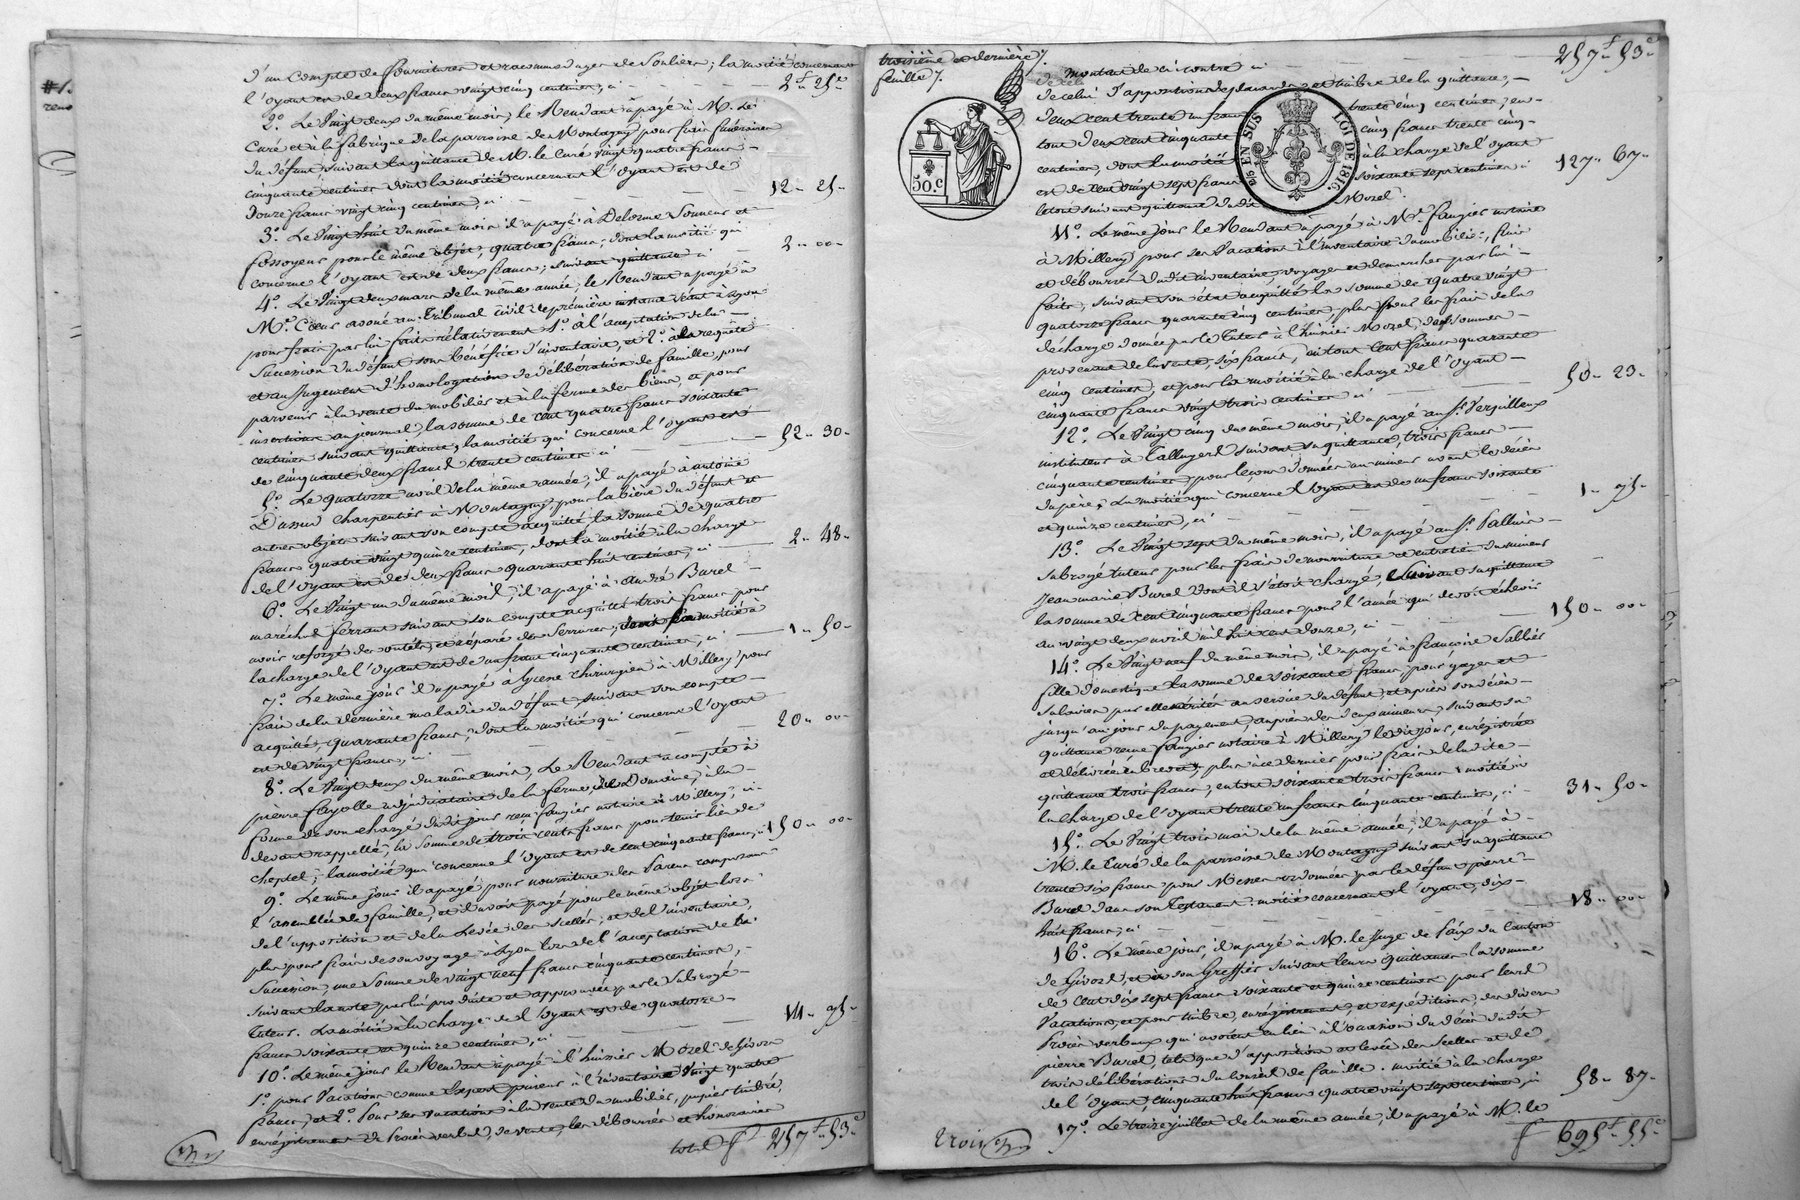 #1.
reno
d'un Compte de fournitures et raccommodages de Souliers; la moitié concernant
l'oyant est de deux francs vingt cinq centimes, ci 2f 25c
2º. Le Vingt deux du même mois, le Rendant a payé à M. Le
Curé et à la fabrique de la paroisse de Montagny pour frais funéraires
du défunt suivant la quittance de M. le Curé vingt quatre francs
cinquante centimes dont la moitié concernant l'oyant est de
douze francs vingt cinq centimes, ci 12 - 25 -
3º. Le Vingt huit du même mois il a payé à Delorme Sonneur et
fossoyeur pour le même objet, quatre francs, dont la moitié qui
concerne l'oyant est de deux francs; suivant quittance ci 2 - 00 -
4º. Le Vingt deux mars de la même année, le Rendant a payé à
Me. Coeur avoué au Tribunal civil de première instance séant à Lyon
pour frais par lui faits relativement 1º. à l'acceptation de la
Succession du défunt sous bénéfice d'inventaire, et 2º. à la requête
et au Jugement d'homologation de délibération de famille, pour
parvenir à la vente du mobilier et à la ferme des biens, et pour
insertions au journal, la somme de cent quatre francs soixante
centimes suivant quittance, la moitié qui concerne l'oyant est
de cinquante deux francs trente centimes ci 52 - 30 -
5º. Le quatorze avril de la même année, il a payé à antoine
Dassier charpentier à Montagny, pour la bière du défunt et
autres objets suivant son compte acquitté, la somme de quatre
francs quatre vingt quinze centimes, dont la moitié à la charge
de l'oyant est de deux francs quarante huit centimes, ci 2 - 48 -
6º. Le Vingt un du même mois, il a payé à andré Burel
maréchal ferrant suivant son compte acquitté trois francs pour
avoir reforgé des outils, et réparé des Serrures, dont la moitié à
la charge de l'oyant est de un franc cinquante centimes, ci 1 - 50 -
7º. Le même jour il a payé à Grene chirurgien à Millery pour
frais de la dernière maladie du défunt suivant son compte
acquitté, quarante francs, dont la moitié qui concerne l'oyant
est de vingt francs, ci 20 - 00 -
8º. Le Vingt deux du même mois, Le Rendant a compté à
pierre fayolle adjudicataire de la ferme du Domaine, à la
forme de son chargé du dit jour reçu faugier notaire à Millery, ci-
devant rappellé, la somme de trois cents francs pour tenir lieu de
cheptel; la moitié qui concerne l'oyant est de cent cinquante francs, ci 150 - 00 -
9º. Le même jour il a payé pour nourriture des Parens composant
l'assemblée de famille, et il avoit payé pour le même objet lors
de l'apposition et de la Levée des scellés, et de l'inventaire,
plus pour frais de son voyage à Lyon lors de l'acceptation de la
Succession, une Somme de vingt neuf francs cinquante centimes,
suivant la note par lui produite et approuvée par le Subrogé-
tuteur. La moitié à la charge de l'oyant est de quatorze
francs soixante et quinze centimes, ci 14 - 75 -
10º. Le même jour le Rendant a payé à l'huissier Mozel de Givors
1º. pour Vacations comme Expert priseur à l'inventaire Vingt quatre
francs, et 2º. Pour ses vacations à la vente du mobilier, papier timbré,
enrégistrement du Procès verbal, de vente, les débourses et honoraires
total f 257f 53c
troisième et dernière
feuille
montant de ci contre ci 257f 53c
de celui d'apposition de placards et timbre de la quittance,
deux cent trente un francs trente cinq centimes; en
tout deux cent cinquante cinq francs trente cinq
centimes, dont la moitié à la charge de l'oyant
est de cent vingt sept francs soixante sept centimes ci 127 - 67 -
le tout suivant quittance du dit Mozel.
50.c
BIS EN SUS LOI DE 1816.
11º. Le même jour le Rendant a payé à Me. faugier notaire
à Millery pour ses Vacations à l'inventaire du mobilier, frais
et débourses du dit inventaire, voyages et démarches par lui
faits, suivant son état acquitté la somme de quatre vingt
quatorze francs quarante cinq centimes, plus pour les frais de la
décharge donnée par le tuteur à l'huissier Mozel, des sommes
provenant de la vente, six francs, en tout Cent francs quarante
cinq centimes, et pour la moitié à la charge de l'oyant
cinquante francs vingt trois centimes ci 50 - 23 -
12º. Le Vingt cinq du même mois, il a payé au Sr. Verpilleux
instituteur à Talluyers suivant sa quittance, trois francs
cinquante centimes, pour leçons données au mineur avant le décès
du père; La moitié qui concerne l'oyant est de un franc soixante
et quinze centimes, ci 1 - 75 -
13º. Le Vingt sept du même mois, il a payé au Sr. Palluis
subrogé tuteur pour les frais de nourriture et entretien du mineur
Jean marie Burel dont il s'étoit chargé, Suivant sa quittance
la somme de cent cinquante francs pour l'année qui devoit échoir
au vingt deux avril mil huit cent douze, ci 150 - 00 -
14º. Le Vingt neuf du même mois, il a payé à françoise Vallier
fille domestique la somme de soixante francs pour gages et
salaires par elle mérités au service du défunt, et après son décès
jusqu'au jour du payement, auprès des deux mineurs, suivant sa
quittance reçue faugier notaire à Millery le dit jour, enrégistrée
et délivrée en brevet, plus à ce dernier pour frais de la dite
quittance trois francs, en tout soixante trois francs; moitié à
la charge de l'oyant trente un francs cinquante centimes, ci 31 - 50 -
15º. Le Vingt trois mai de la même année, il a payé à
M. le Curé de la paroisse de Montagny suivant sa quittance
trente six francs pour Messes ordonnées par le défunt pierre
Burel dans son Testament. moitié concernant l'oyant, dix-
huit francs, ci 18 - 00 -
16º. Le même jour, il a payé à M. le Juge de Paix du Canton
de Givors, et à son Greffier suivant leurs quittances la somme
de Cent dix sept francs soixante et quinze centimes pour leurs
Vacations, et pour timbre, enrégistrement, et expéditions, des divers
Procès verbaux qui avoient eu lieu à l'occasion du décès du dit
pierre Burel, tels que d'apposition et levée des Scellés et de
trois délibérations du Conseil de famille. moitié à la charge
de l'oyant, cinquante huit francs quatre vingt sept centimes, ci 58 - 87 -
17º. Le treize juillet de la même année, il a payé à M. le
Trois f 695f 55c